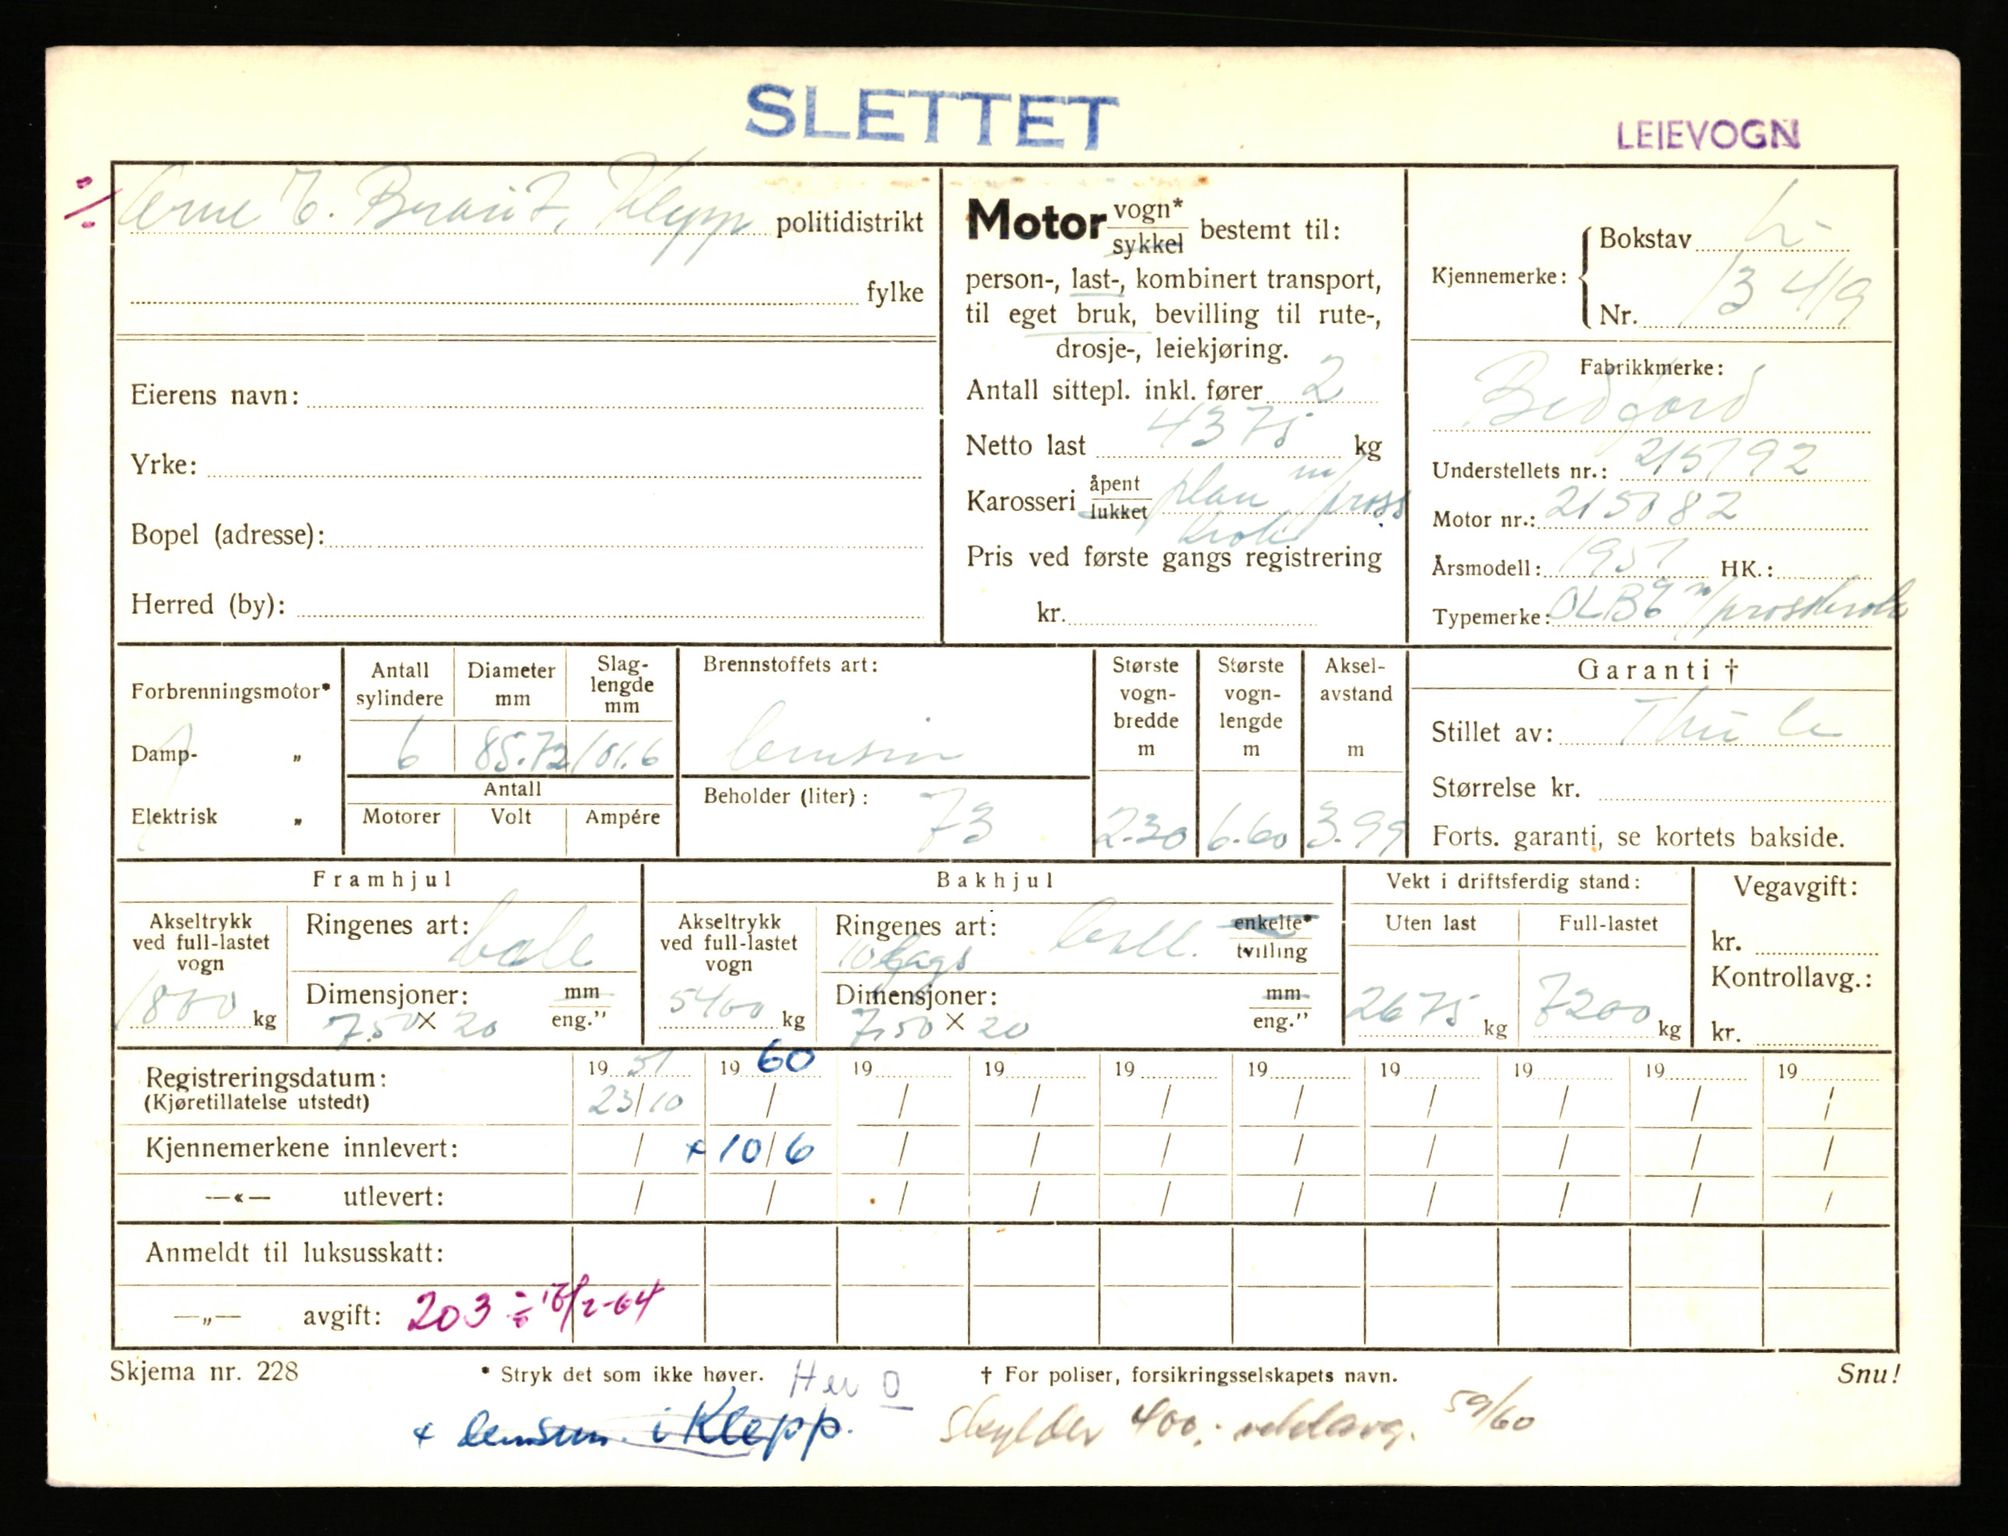 SLETTET
LEIEVOGN
Arne E. Braut, Klepp politidistrikt
fylke
Eierens navn:
Yrke:
Bopel (adresse):
Herred (by):
Motor vogn* / sykkel bestemt til:
person-, last-, kombinert transport,
til eget bruk, bevilling til rute-,
drosje-, leiekjøring.
Antall sittepl. inkl. fører 2
Netto last 4375 kg
Karosseri åpent / lukket plan m/pross
krok
Pris ved første gangs registrering
kr.
Kjennemerke: Bokstav L-
Nr. 13419
Fabrikkmerke:
Bedford
Understellets nr.: 215792
Motor nr.: 215082
Årsmodell: 1951 HK.:
Typemerke: OLBC m/prosskrok
Forbrenningsmotor*
Damp- „
Elektrisk „
Antall sylindere 6
Diameter mm 85.72
Slag-lengde mm 101.6
Antall
Motorer Volt Ampére
Brennstoffets art:
bensin
Beholder (liter): 73
Største vogn-bredde m 2.30
Største vogn-lengde m 6.60
Aksel-avstand m 3.99
Garanti †
Stillet av: Thule
Størrelse kr.
Forts. garanti, se kortets bakside.
Framhjul
Akseltrykk ved full-lastet vogn 1800 kg
Ringenes art:
Dimensjoner: mm / eng."
7.50 x 20
Bakhjul
Akseltrykk ved full-lastet vogn 5400 kg
Ringenes art: enkelte* / tvilling
10 lags
Dimensjoner: mm / eng."
7.50 x 20
Vekt i driftsferdig stand:
Uten last 2675 kg
Full-lastet 7200 kg
Vegavgift:
kr.
Kontrollavg.:
kr.
Registreringsdatum: 19 51 19 60 19 19 19 19 19 19 19 19
(Kjøretillatelse utstedt) 23/10 / / / / / / / / /
Kjennemerkene innlevert: / + 10/6 / / / / / / / /
—«— utlevert: / / / / / / / / / /
Anmeldt til luksusskatt:
—„— avgift: 203 ÷ 18/2-64
Skjema nr. 228
* Stryk det som ikke høver. Her O
† For poliser, forsikringsselskapets navn.
Snu!
+ lensm. i Klepp.
Skylder 400,- 59/60